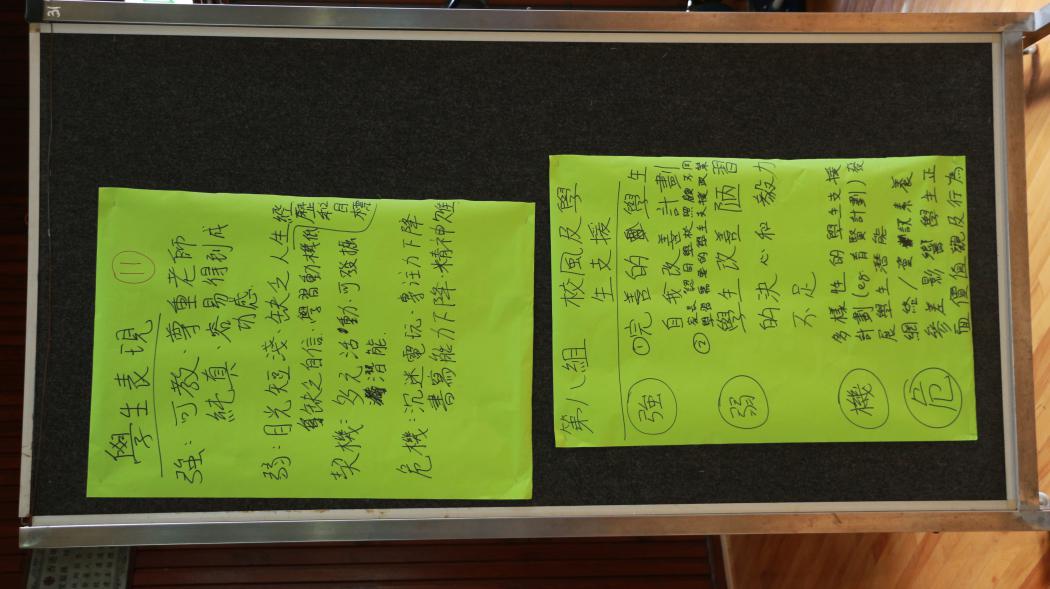 學生表現
11
強：可教、尊重老師
純真、容易得到成
功感
弱：目光短淺、缺乏人生經
歷和
目標
缺乏自信、學習動機低
契機：多元活動、可發掘
潛能
危機：沉迷電玩、專注力下降
書寫能力下降、精神難
第八組 校風及學
生支援
強
①完善的學生
自我改善計劃
家長認同學校照顧不同
學習需要的學生支援政策
②
弱
學生改善陋習
的決心和毅力
不足
機
多樣性的學生支援
計劃(eg首賢計劃)發
展學生潛能
危
網絡/資訊素養
參差影響學生正
面價值觀及行為
31